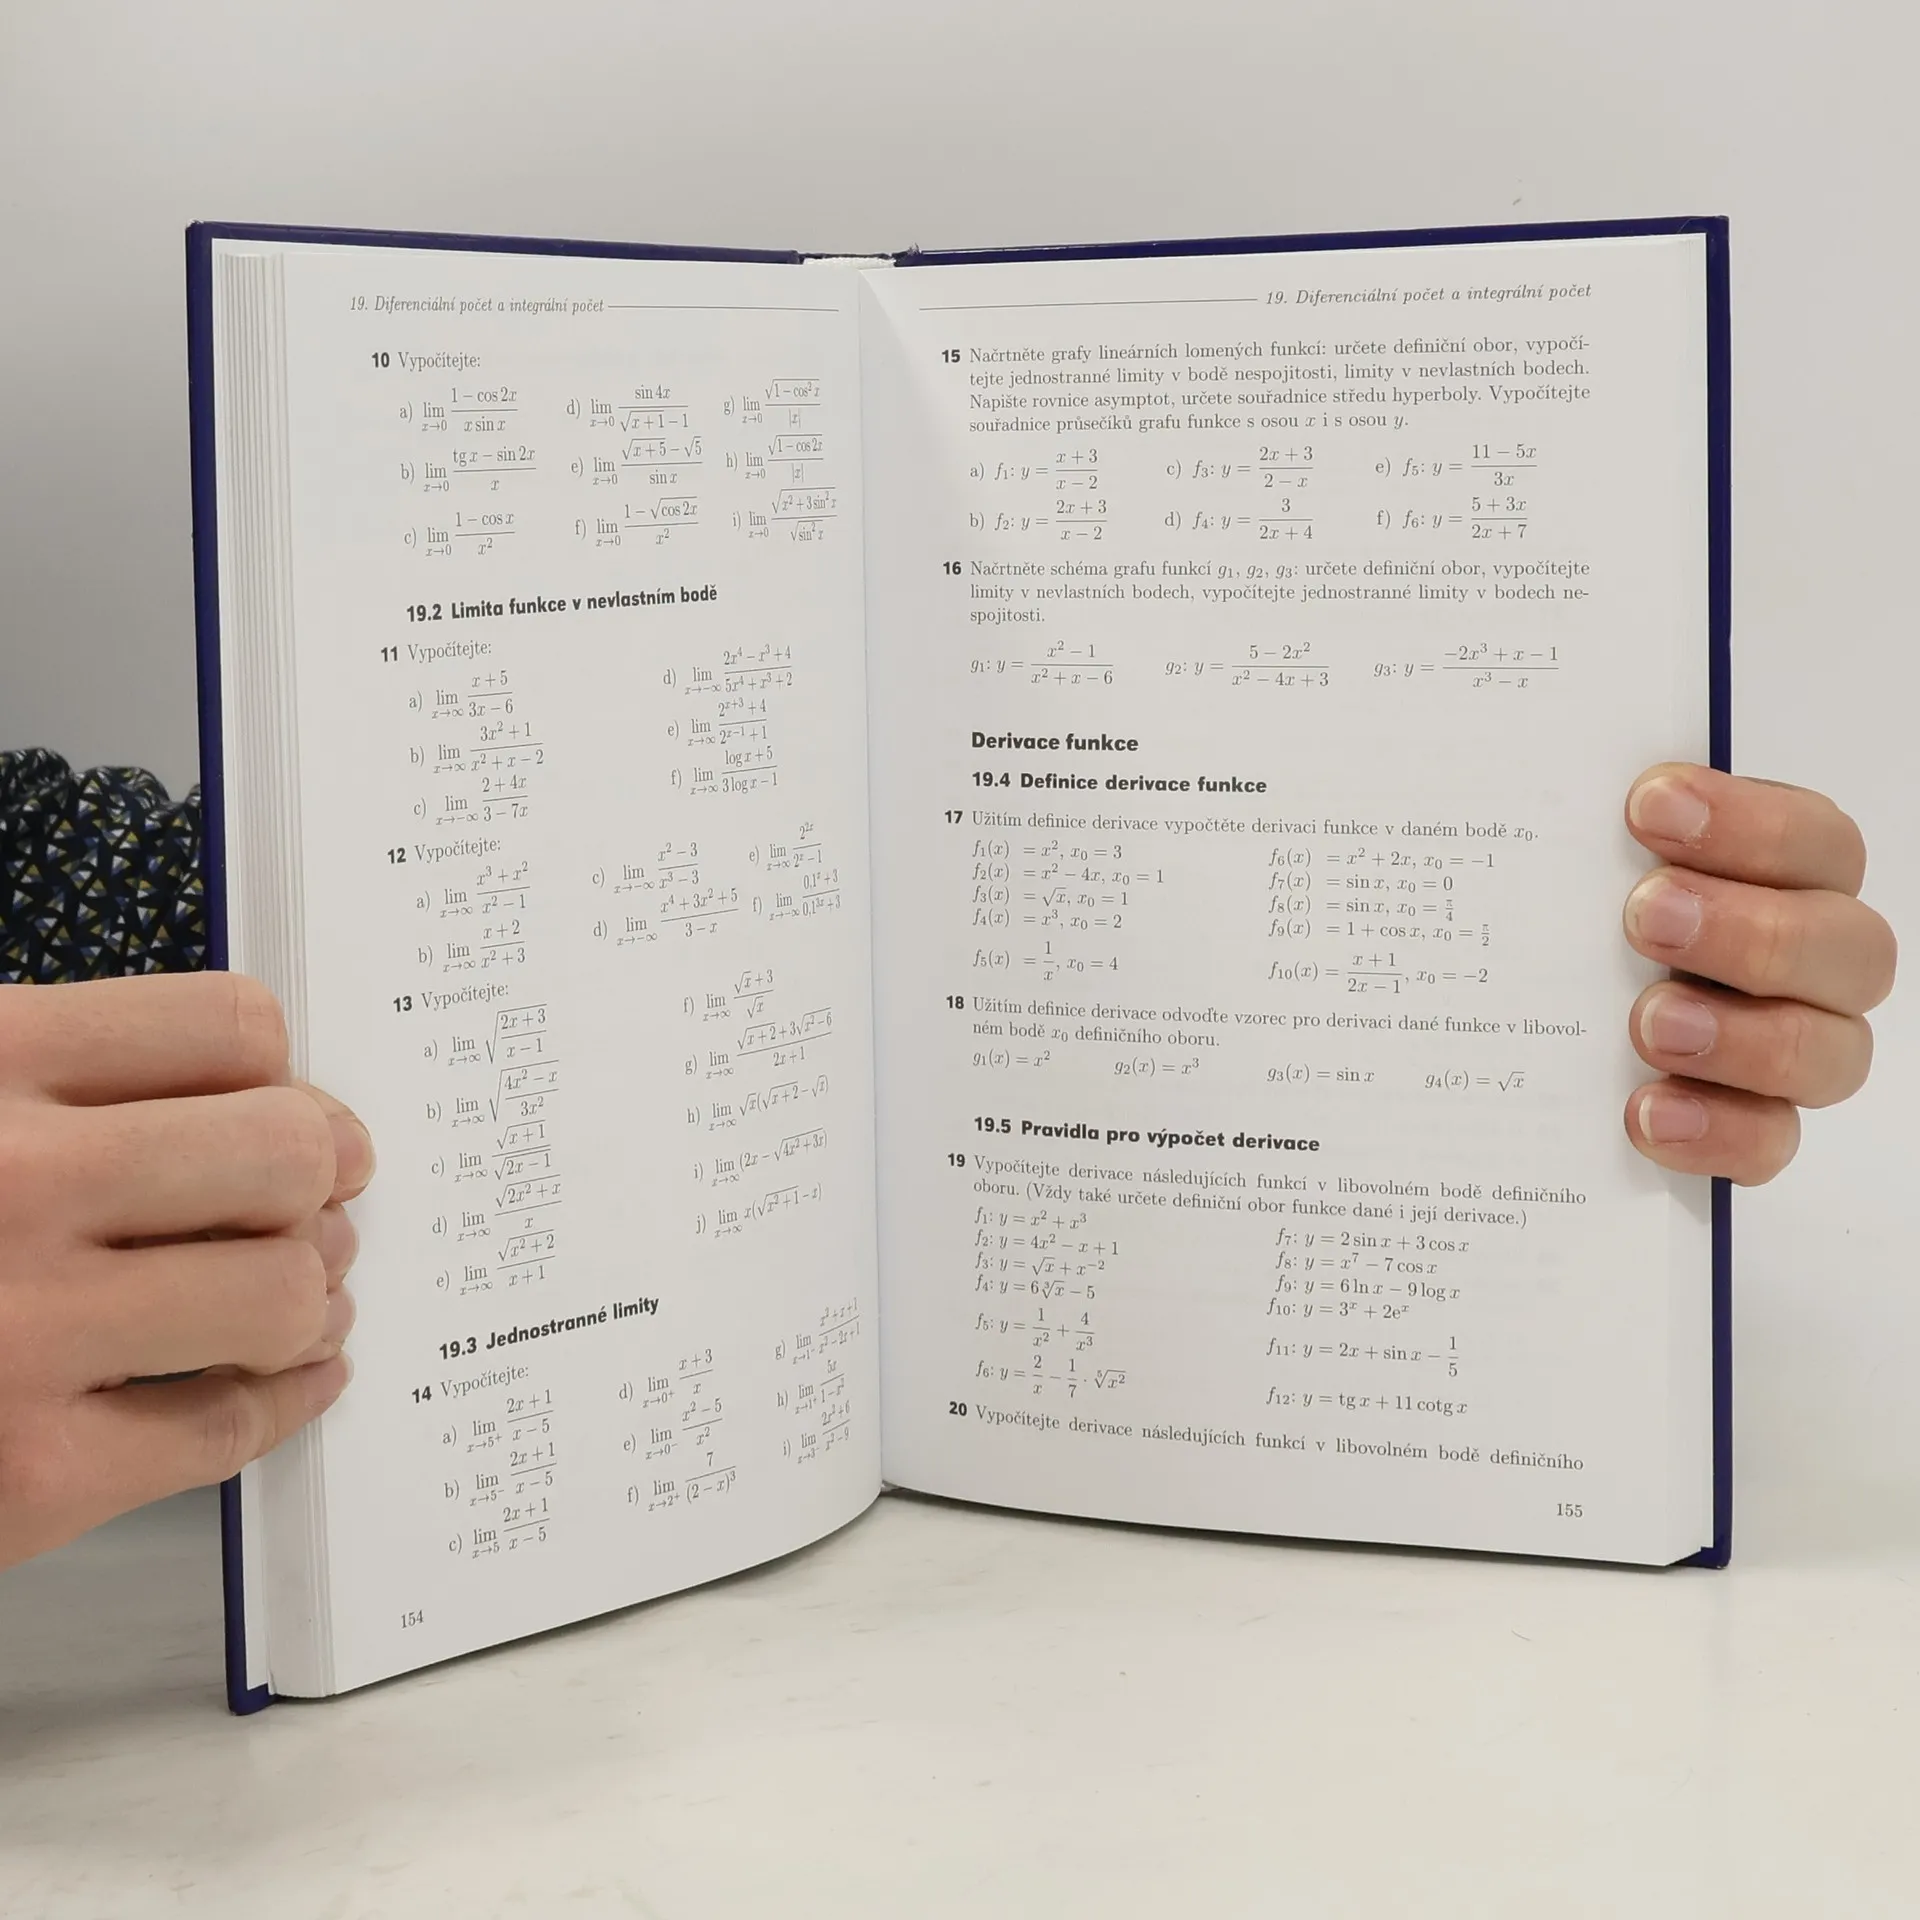 19. Diferenciální počet a integrální počet
10 Vypočítejte:
a) lim x→0 (1 − cos 2x)/(x sin x)
d) lim x→0 (sin 4x)/(√(x + 1) − 1)
g) lim x→0 √(1 − cos² x)/|x|
b) lim x→0 (tg x − sin 2x)/x
e) lim x→0 (√(x + 5) − √5)/(sin x)
h) lim x→0 √(1 − cos 2x)/|x|
c) lim x→0 (1 − cos x)/x²
f) lim x→0 (1 − √(cos 2x))/x²
i) lim x→0 √(x² + 3 sin² x)/√(sin² x)
19.2 Limita funkce v nevlastním bodě
11 Vypočítejte:
a) lim x→∞ (x + 5)/(3x − 6)
d) lim x→−∞ (2x⁴ − x³ + 4)/(5x⁴ + x³ + 2)
b) lim x→∞ (3x² + 1)/(x² + x − 2)
e) lim x→∞ (2^(x+3) + 4)/(2^(x−1) + 1)
c) lim x→−∞ (2 + 4x)/(3 − 7x)
f) lim x→∞ (log x + 5)/(3 log x − 1)
12 Vypočítejte:
a) lim x→∞ (x³ + x²)/(x² − 1)
c) lim x→−∞ (x² − 3)/(x³ − 3)
e) lim x→∞ 2^(2x)/(2^x − 1)
b) lim x→∞ (x + 2)/(x² + 3)
d) lim x→−∞ (x⁴ + 3x² + 5)/(3 − x)
f) lim x→−∞ (0,1^x + 3)/(0,1^(2x) + 3)
13 Vypočítejte:
a) lim x→∞ √((2x + 3)/(x − 1))
f) lim x→∞ (√x + 3)/√x
b) lim x→∞ √((4x² − x)/(3x²))
g) lim x→∞ (√(x + 2) + 3√(x² − 6))/(2x + 1)
c) lim x→∞ √(x + 1)/√(2x − 1)
h) lim x→∞ √x(√(x + 2) − √x)
d) lim x→∞ √(2x² + x)/x
i) lim x→∞ (2x − √(4x² + 3x))
e) lim x→∞ √(x² + 2)/(x + 1)
j) lim x→∞ x(√(x² + 1) − x)
19.3 Jednostranné limity
14 Vypočítejte:
a) lim x→5⁺ (2x + 1)/(x − 5)
d) lim x→0⁺ (x + 3)/x
g) lim x→1⁻ /(x² − 2x + 1)
b) lim x→5⁻ (2x + 1)/(x − 5)
e) lim x→0⁻ (x² − 5)/x²
h) lim x→1⁺ 5x/(1 − x²)
c) lim x→5 (2x + 1)/(x − 5)
f) lim x→2⁺ 7/(2 − x)³
i) lim x→3⁻ /(x² − 9)
154
19. Diferenciální počet a integrální počet
15 Načrtněte grafy lineárních lomených funkcí: určete definiční obor, vypočí-
tejte jednostranné limity v bodě nespojitosti, limity v nevlastních bodech.
Napište rovnice asymptot, určete souřadnice středu hyperboly. Vypočítejte
souřadnice průsečíků grafu funkce s osou x i s osou y.
a) f₁: y = (x + 3)/(x − 2)
c) f₃: y = (2x + 3)/(2 − x)
e) f₅: y = (11 − 5x)/(3x)
b) f₂: y = (2x + 3)/(x − 2)
d) f₄: y = 3/(2x + 4)
f) f₆: y = (5 + 3x)/(2x + 7)
16 Načrtněte schéma grafu funkcí g₁, g₂, g₃: určete definiční obor, vypočítejte
limity v nevlastních bodech, vypočítejte jednostranné limity v bodech ne-
spojitosti.
g₁: y = (x² − 1)/(x² + x − 6)
g₂: y = (5 − 2x²)/(x² − 4x + 3)
g₃: y = (−2x³ + x − 1)/(x³ − x)
Derivace funkce
19.4 Definice derivace funkce
17 Užitím definice derivace vypočtěte derivaci funkce v daném bodě x₀.
f₁(x) = x², x₀ = 3
f₂(x) = x² − 4x, x₀ = 1
f₃(x) = √x, x₀ = 1
f₄(x) = x³, x₀ = 2
f₅(x) = 1/x, x₀ = 4
f₆(x) = x² + 2x, x₀ = −1
f₇(x) = sin x, x₀ = 0
f₈(x) = sin x, x₀ = π/4
f₉(x) = 1 + cos x, x₀ = π/2
f₁₀(x) = (x + 1)/(2x − 1), x₀ = −2
18 Užitím definice derivace odvoďte vzorec pro derivaci dané funkce v libovol-
ném bodě x₀ definičního oboru.
g₁(x) = x² g₂(x) = x³ g₃(x) = sin x g₄(x) = √x
19.5 Pravidla pro výpočet derivace
19 Vypočítejte derivace následujících funkcí v libovolném bodě definičního
oboru. (Vždy také určete definiční obor funkce dané i její derivace.)
f₁: y = x² + x³
f₂: y = 4x² − x + 1
f₃: y = √x + x⁻²
f₄: y = 6∛x − 5
f₅: y = 1/x² + 4/x³
f₆: y = 2/x − 1/7 · ⁵√(x²)
f₇: y = 2 sin x + 3 cos x
f₈: y = x⁷ − 7 cos x
f₉: y = 6 ln x − 9 log x
f₁₀: y = 3ˣ + 2eˣ
f₁₁: y = 2x + sin x − 1/5
f₁₂: y = tg x + 11 cotg x
20 Vypočítejte derivace následujících funkcí v libovolném bodě definičního
155